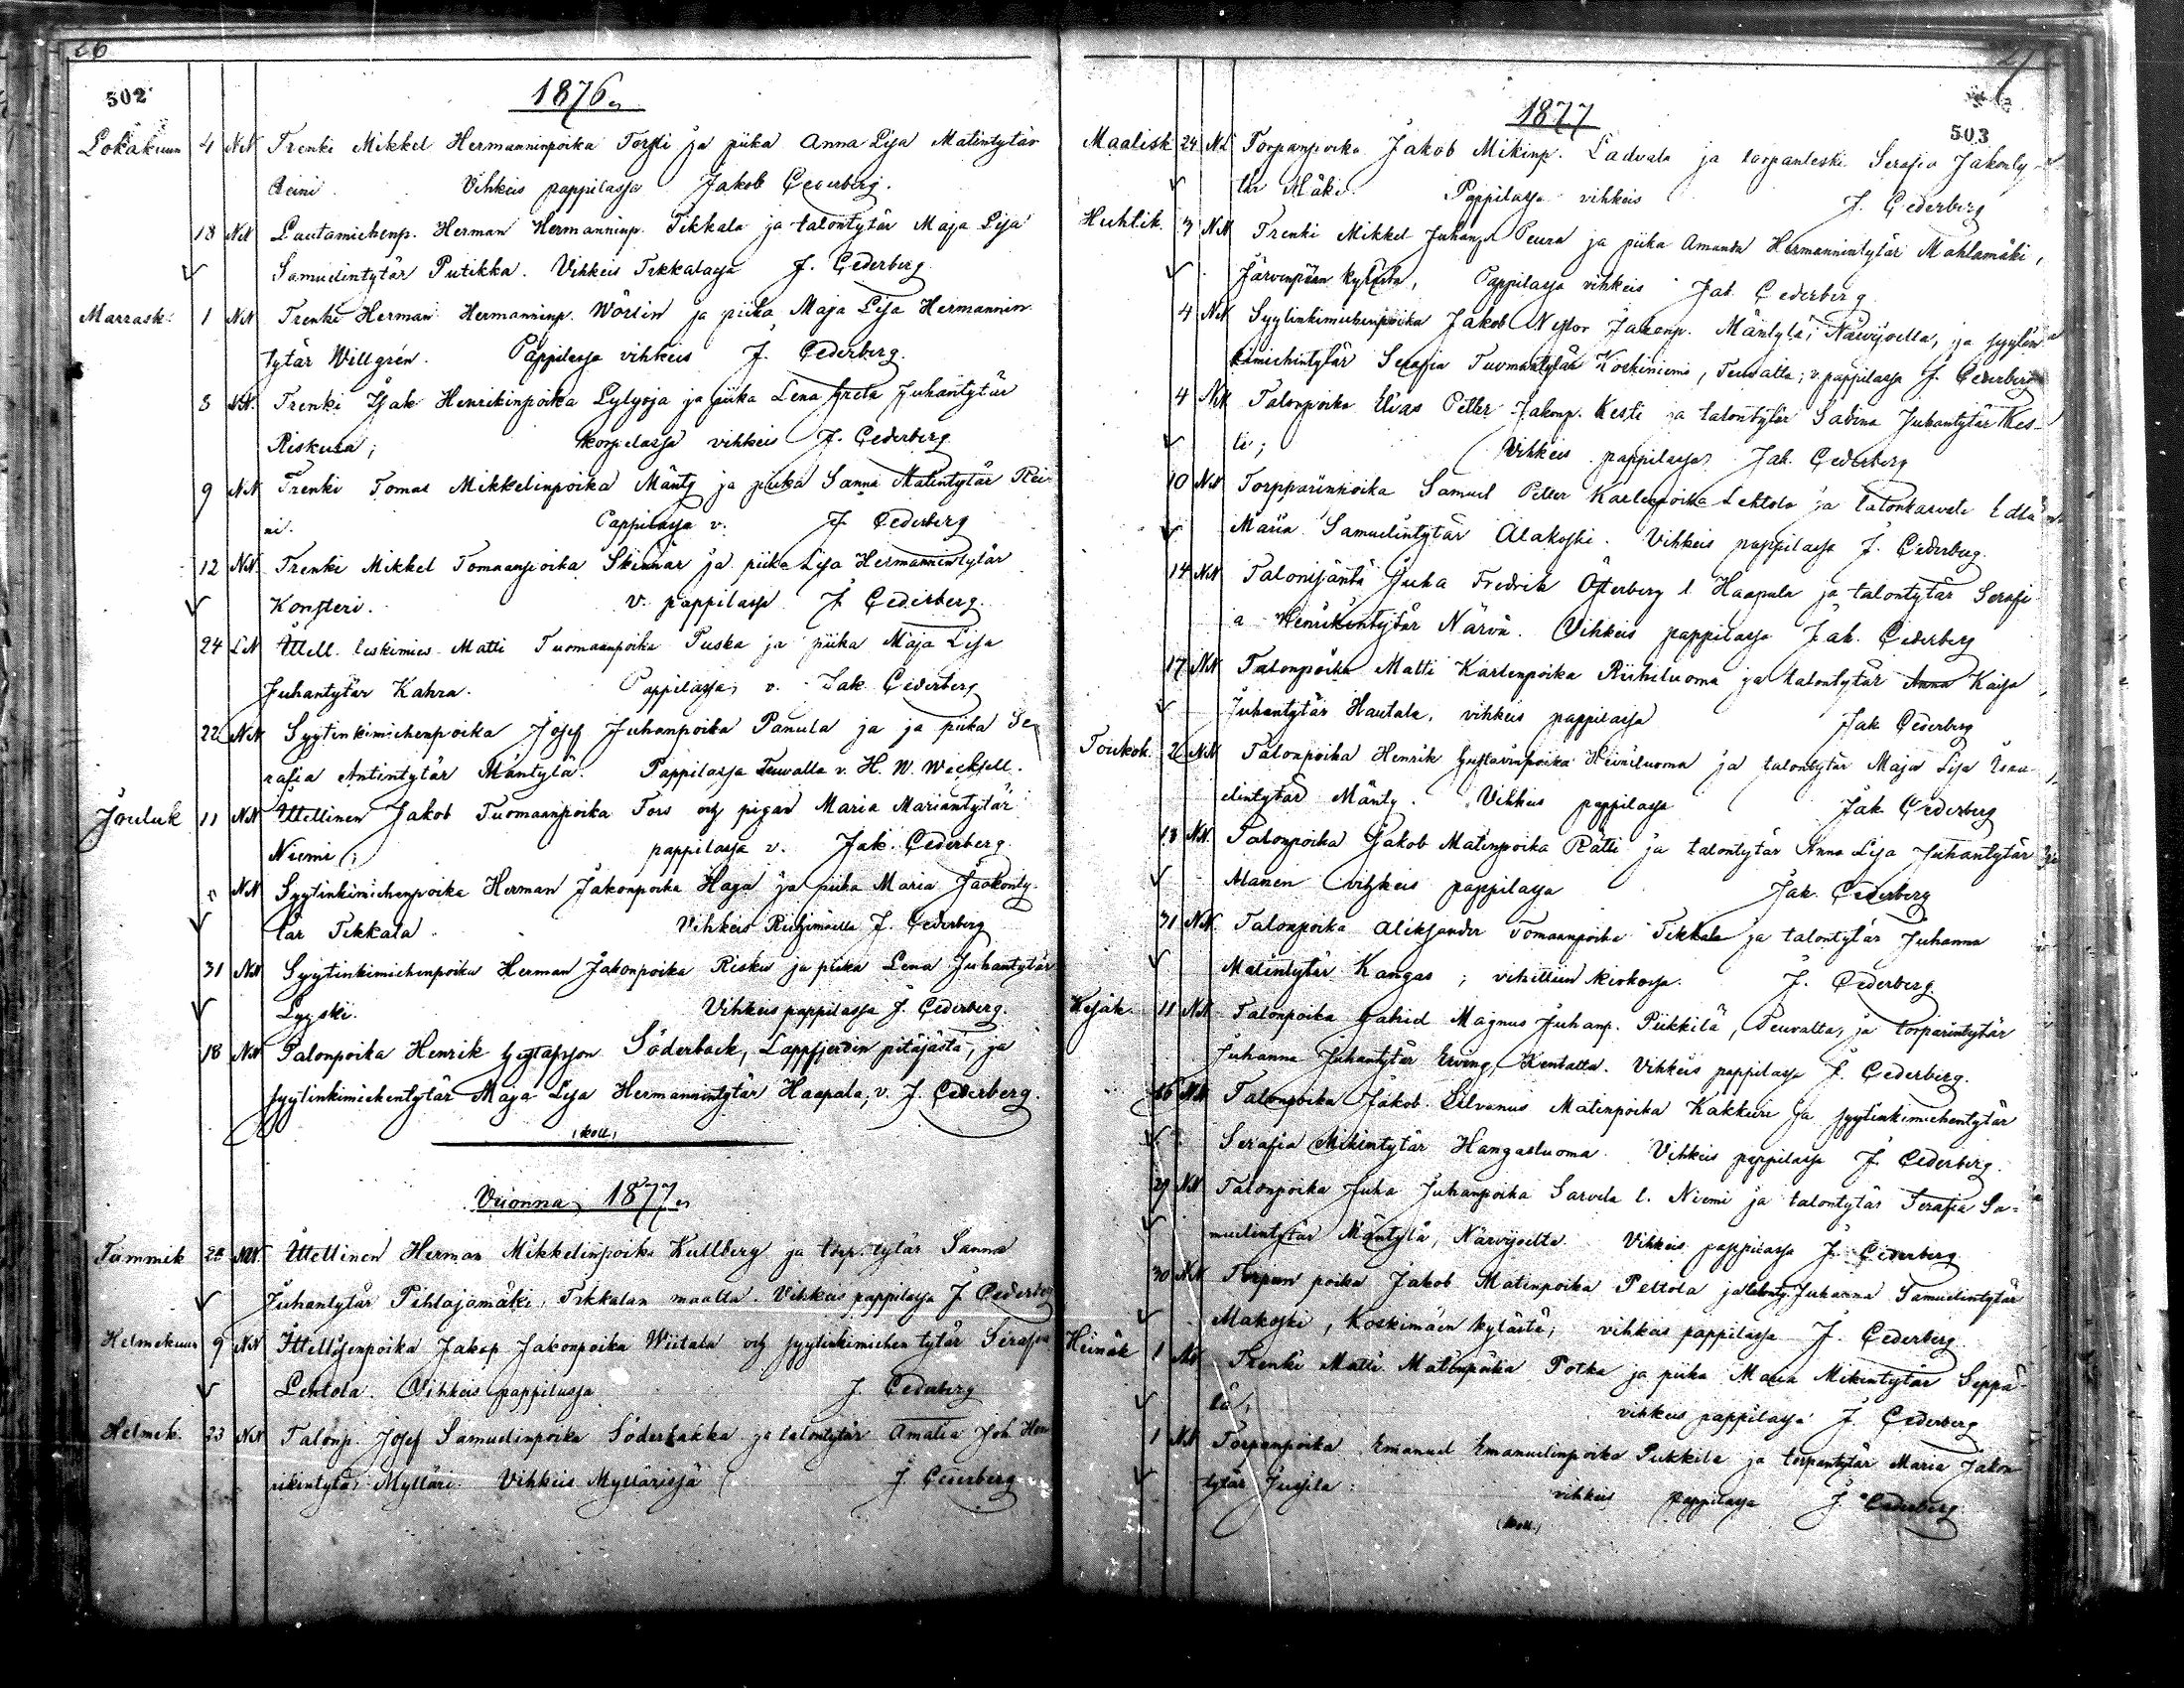 26
502
1876
Lokakuun 4 NN Trenki Mikkel Hermanninpoika Torsti ja piika Anna Lisa Matintytär
Reini. Vihkeis pappilassa Jakob Cederberg.
18 NN Lautamiehenp. Herman Hermanninp. Tikkala ja talontytär Maja Lisa
Samuelintytär Putikka. Vihkeis Tikkalassa J. Cederberg
Marrask. 1 NN Trenki Herman Hermanninp. Wörlin ja piika Maja Lisa Hermannin
tytär Willgrén. Pappilassa vihkeis J. Cederberg.
8 NN. Trenki Isak Henrikinpoika Lylyoja ja piika Lena Greta Juhantytär
Riskula; Korpelassa vihkeis J. Cederberg
9 NN Trenki Tomas Mikkelinpoika Mänty ja piika Sanna Matintytär Rei-
ni. Pappilassa v. J. Cederberg
12 NN. Trenki Mikkel Tomaanpoika Skinnar ja piika Lisa Hermannintytär
Konsteri. v. pappilassa J. Cederberg.
24 LN Itell. leskimies Matti Tuomaanpoika Puska ja piika Maja Lisa
Juhantytär Kahra. Pappilassa v. Jak. Cederberg
22 NN Syytinkimiehenpoika Josef Juhanpoika Panula ja ja piika Se
rafia Antintytär Mäntylä. Pappilassa Teuvalla v. H. W. Wecksell.
Jouluk 11 NN Itellinen Jakob Tuomaanpoika Tors och pigan Maria Mariantytär
Niemi; pappilassa v. Jak. Cederberg.
" NN Syytinkimiehenpoika Herman Jakonpoika Haga ja piika Maria Jaakonty-
tär Tikkala. Vihkeis Riihimäellä J. Cederberg
31 NN Syytinkimiehenpoika Herman Jakonpoika Risku ja piika Lena Juhantytär
Lyyski. Vihkeis pappilassa J. Cederberg.
18 NN Talonpoika Henrik Gustafsson Söderback, Lappfjerdin pitäjästä, ja
syytinkimiehentytär Maja Lisa Hermannintytär Haapala, v. J. Cederberg.
(koll.)
Vuonna 1877
Tammik NN. Itellinen Herman Mikkelinpoika Kullberg ja torp. tytär Sanna
Juhantytär Pihlajamäki, Tikkalan maalta. Vihkeis pappilassa J. Cederberg
Helmekuun 9 NN Itellisenpoika Jakop Jakonpoika Wiitala och syytinkimiehen tytär Serafia
Lehtola. Vihkeis pappilassa J. Cederberg
Helmek. 23 NN Talonp. Josef Samuelinpoika Söderbakka ja talontytär Amalia Joh. Hen
rikintytär Mylläri. Vihkeis Myllärissä J. Cederberg
27
503
1877
Maalisk 24 NL Torpanpoika Jakob Mikinp. Ladvala ja torpanleski Serafia Jakonty-
tär Mäki. Pappilassa vihkeis J. Cederberg
Huhtik. 3 NN Trenki Mikkel Juhanp. Peura ja piika Amanda Hermannintytär Mahlamäki,
Järvenpään kylästä, Pappilassa vihkeis Jak. Cederberg
4 NN Syytinkimiehenpoika Jakob Nestor Jakonp. Mäntylä, Närvijoelta, ja syytin
kimiehintytär Serafia Tuomantytär Koskiniemi, Teuvalta; v. pappilassa J. Cederberg
4 NN Talonpoika Elias Petter Jakonp. Kesti ja talontytär Sabina Juhantytär Kes-
ti; Vihkeis pappilassa Jak. Cederberg
10 NN Torpparinpoika Samuel Petter Karlenpoika Lehtola ja talonkasvati
Maria Samuelintytär Alakoski. Vihkeis pappilassa J. Cederberg.
14 NN Talonisäntä Juha Fredrik Österberg l. Haapala ja talontytär Serafi
a Henrikintytär Närvä. Vihkeis pappilassa Jak. Cederberg
17 NN Talonpoika Matti Karlenpoika Riihiluoma ja talontytär Anna Kaisa
Juhantytär Hautala, vihkeis pappilassa Jak Cederberg
Toukok. 2 NN Talonpoika Henrik Gustavinpoika Heiniluoma ja talontytär Maja Lisa
elintytär Mänty. Vihkeis pappilassa Jak Cederberg
13 NN. Talonpoika Jakob Matinpoika Rätti ja talontytär Anna Lisa Juhantytär
Manen vihkeis pappilassa Jak. Cederberg
31 NN. Talonpoika Aliksander Tomaanpoika Tikkala ja talontytär Juhanna
Matintytär Kangas; vihittiin kirkossa. J. Cederberg.
Kesäk. 11 NN Talonpoika Gabriel Magnus Juhanp. Piikkilä, Teuvalta, ja torparintytär
Juhanna Juhantytär Erving, Kentalta. Vihkeis pappilassa J. Cederberg.
16 NN Talonpoika Jakob Silvanus Matinpoika Kakkuri ja syytinkimiehentytär
Serafia Mikintytär Hangasluoma. Vihkeis pappilassa J. Cederberg.
29 NN Talonpoika Juha Juhanpoika Sarvela l. Niemi ja talontytär Serafia Sa-
muelintytär Mäntylä, Närvijoelta. Vihkeis pappilassa J. Cederberg
30 NN Torpan poika Jakob Matinpoika Peltola ja talonty. Juhanna Samuelintytär
Makoski, Koskimäen kylästä; vihkeis pappilassa J. Cederberg
Heinäk 1 NN Trenki Matti Matinpoika Potka ja piika Maria Mikintytär Seppä-
lä; vihkeis pappilassa J. Cederberg
1 NN Torpanpoika Emanuel Emanuelinpoika Pukkila ja torpantytär Maria Jakon
tytär Jussila: vihkeis pappilassa J. Cederberg.
(koll.)